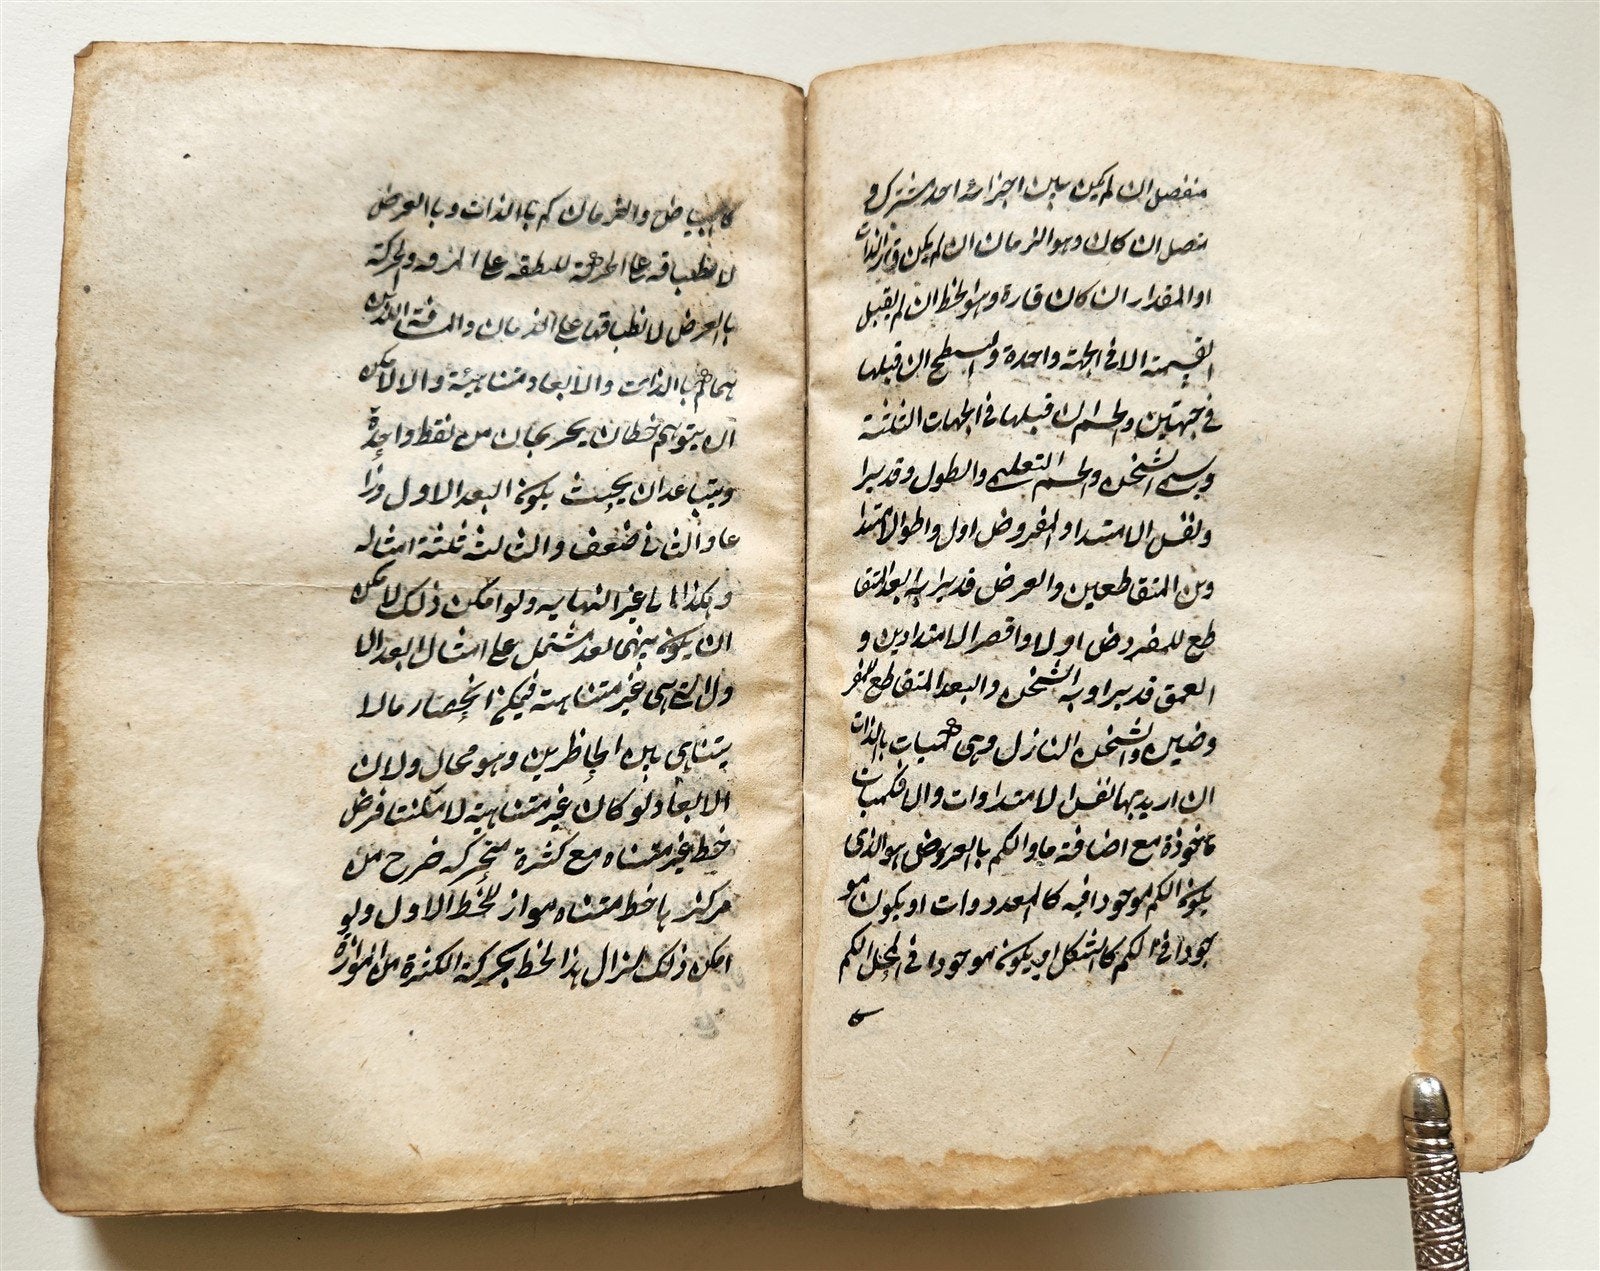 منفصل ان لم يكن بين اجزائه احد مشترك و
متصل ان كان وهو الزمان ان لم يكن قار الذات
او المقدار ان كان قارة وهو الخط ان لم يقبل
القسمة الا فى الجهة واحدة والسطح ان قبلها
فى جهتين والجسم ان قبلها فى الجهات الثلثة
ويسمى الثخن والجسم التعليمى والطول وقد يرا
ولنفس الامتداد المفروض اول واطول الامتدا
دين المتقاطعين والعرض قد يراد به البعد المتقا
طع للمفروض اولا واقصر الامتدادين و
العمق قد يراد به الثخن والبعد المتقاطع للمفر
وضين والثخن النازل وهى كميات بالذات
ان اريد بها نفس الامتدادات والا فكميات
مأخوذة مع اضافة ما والكم بالعروض هو الذى
يكون الكم موجودا فيه كالمعدودات او يكون مو
جودا فى الكم كالشكل او يكون موجودا فى المحل الكم
كالبياض والزمان كم باالذات وباالعرض
لانطباقه على الحركة المنطبقة على المسافة والحركة
باالعرض لانطباقها على الزمان والمسافة اللذين
هما كم باالذات والابعاد متناهية والا لامكن
ان يتوهم خطان يخرجان من نقط واحدة
ويتباعدان بحيث يكون البعد الاول ذرا
عا والثانى ضعف والثالث ثلثة امثاله
وهكذا الى غير النهاية ولو امكن ذلك لامكن
ان يكون بينهما بعد مشتمل على امثال البعد الا
ول التى هى غير متناهية فيمكن انحصار مالا
يتناهى بين الحاظرين وهو محال ولان
الابعاد لو كان غير متناهية لامكنت فرض
خط غير متناه مع كثرة متحركة خرج من
مركزها خط متناه مواز للخط الاول ولو
امكن ذلك لزال هذا الخط بحركة الكثرة من الموازة